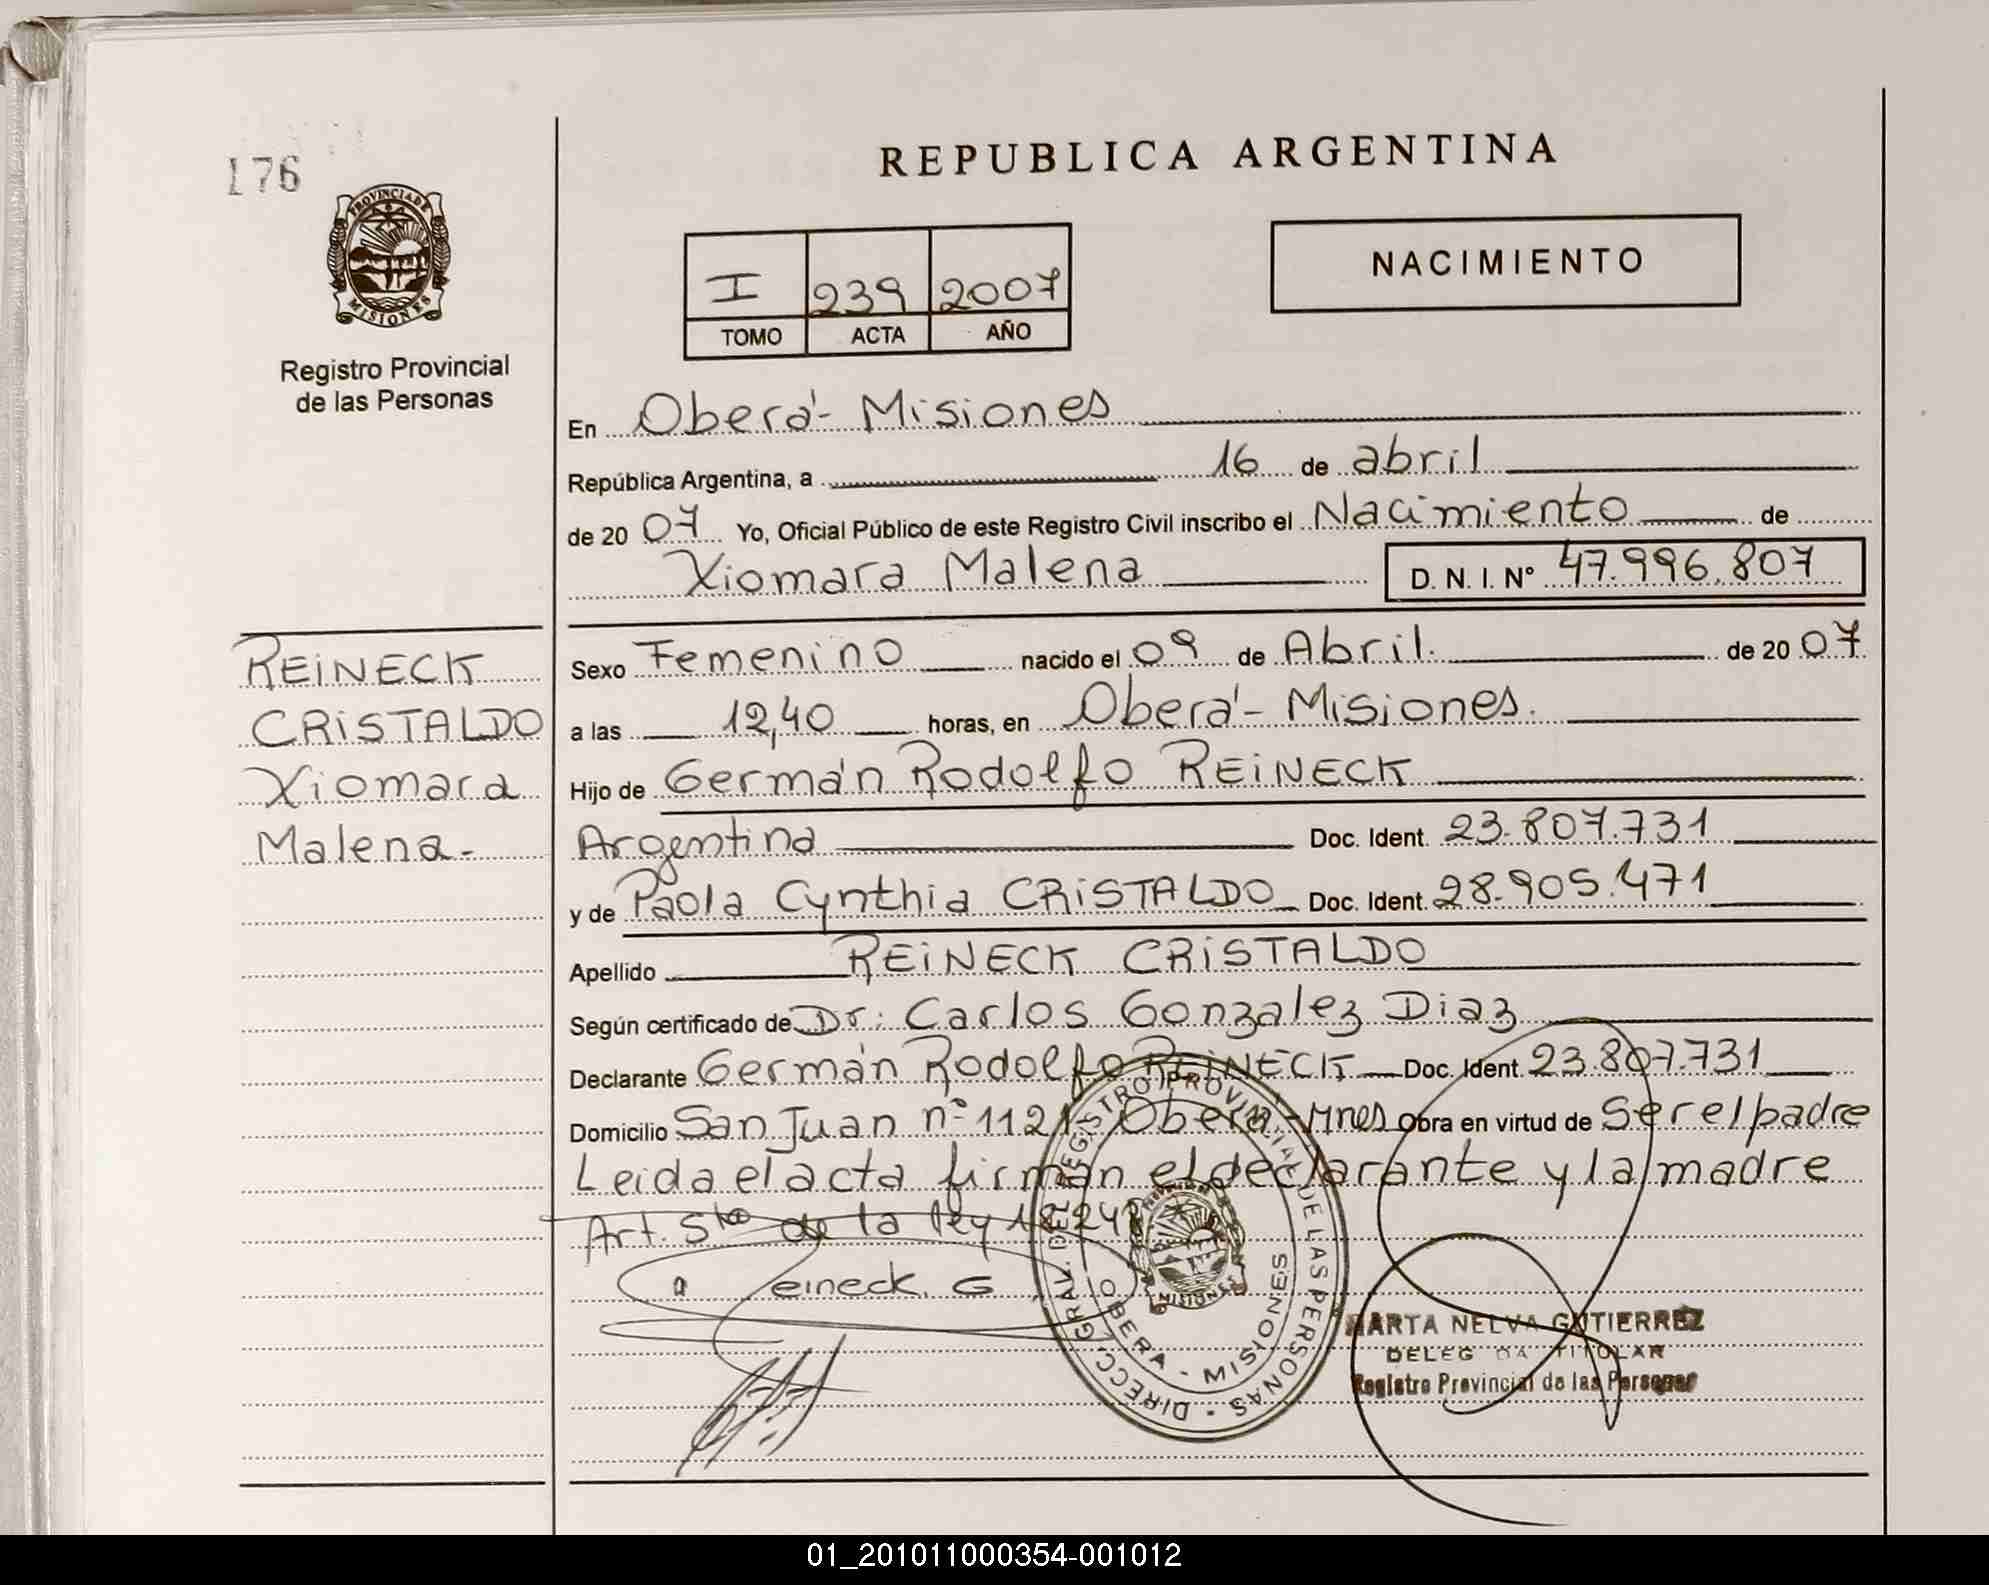 176
PROVINCIA DE
MISIONES
Registro Provincial
de las Personas
REINECK
CRISTALDO
Xiomara
Malena-
REPUBLICA ARGENTINA
I 239 2007
TOMO ACTA AÑO
NACIMIENTO
En Oberá - Misiones
República Argentina, a 16 de abril
de 2007 Yo, Oficial Público de este Registro Civil inscribo el Nacimiento de
Xiomara Malena D. N. I. Nº 47.996.807
Sexo Femenino nacido el 09 de Abril. de 2007
a las 12,40 horas, en Oberá - Misiones.
Hijo de Germán Rodolfo REINECK
Argentina Doc. Ident. 23.807.731
y de Paola Cynthia CRISTALDO Doc. Ident. 28.905.471
Apellido REINECK CRISTALDO
Según certificado de Dr. Carlos Gonzalez Diaz
Declarante Germán Rodolfo REINECK Doc. Ident. 23.807.731
Domicilio San Juan nº 1121 Oberá - Mnes Obra en virtud de Ser el padre
Leida el acta firman el declarante y la madre
Art. 5to de la ley 18.248
Reineck. G
DIRECC. GRAL. DEL REGISTRO PROVINCIAL DE LAS PERSONAS
OBERA - MISIONES
MISIONES
MARTA NELVA GUTIERREZ
DELEGADA TITULAR
Registro Provincial de las Personas
01_201011000354-001012